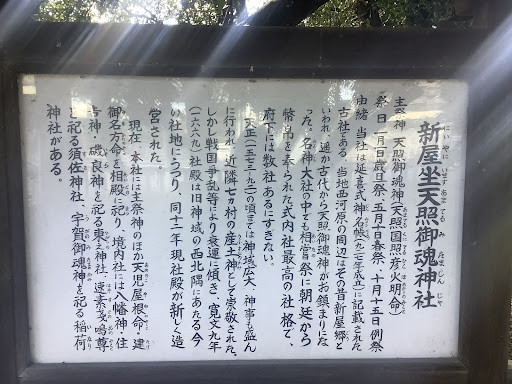 新屋坐天照御魂神社
にいやにいますあまてるみたまじんじゃ
主祭神 天照御魂神(天照国照彦火明命)
祭日 一月一日歳旦祭、五月十日春祭、十月十五日例祭
由緒 当社は延喜式神名帳(九二七年成立)に記載された
古社である。当地西河原の周辺はその昔新屋郷と
いわれ、遥か古代から天照御魂神がお鎮まりにな
った。名神大社の中でも相嘗祭に朝廷から
幣帛を奉られた式内社最高の社格で、
府下には数社あるにすぎない。
天正(一五七三〜九二)の頃までは神域広大、神事も盛ん
に行われ、近隣七ヵ村の産土神として崇敬された。
しかし戦国争乱等により衰運に傾き、寛文九年
(一六六九)社殿は旧神域の西北隅にあたる今
の社地にうつり、同十二年現社殿が新しく造
営された。
現在、本社には主祭神のほか天児屋根命・建
御名方命を相殿に祀り、境内社には八幡神・住
吉神・磯良神を祀る東之神社、速素戔嗚尊
を祀る須佐神社、宇賀御魂神を祀る稲荷
神社がある。